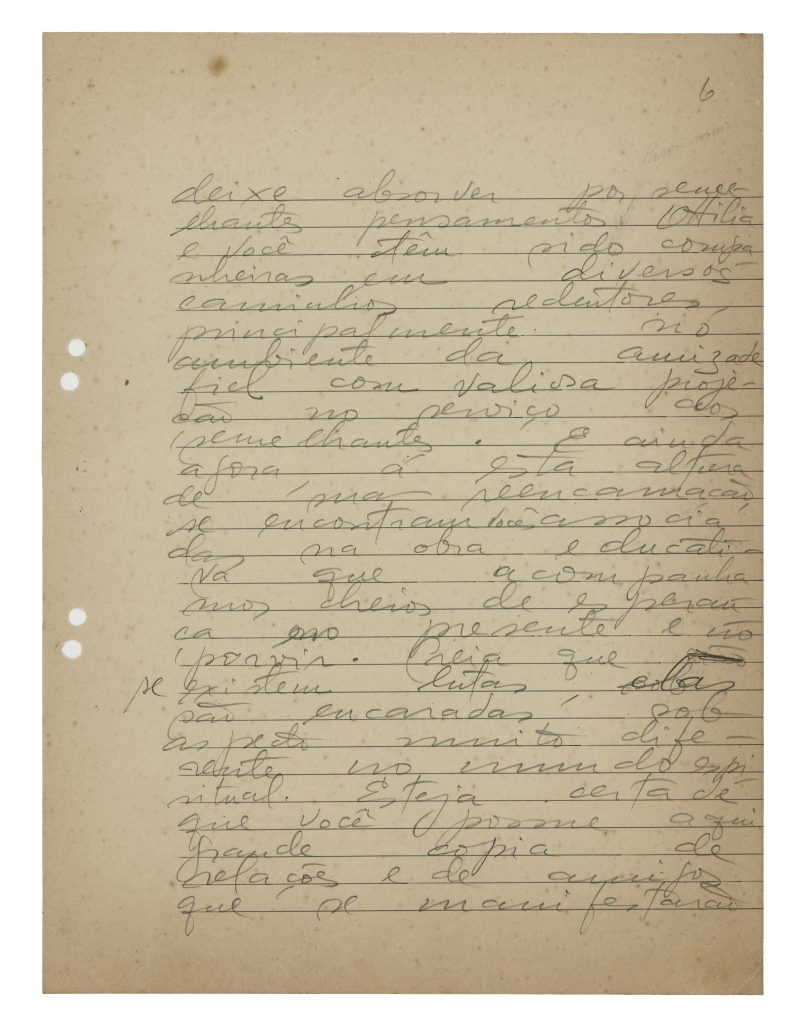 6
deixe absorver por seme-
lhantes pensamentos. Ottilia
e você têm sido compa
nheiras em diversos
caminhos redentores,
principalmente no
ambiente da amizade
fiel com valiosa proje-
ção no serviço aos
semelhantes. E ainda
agora á esta altura
de reencarnação,
se encontram vocês associa
das na obra educati-
va que acompanha
mos cheios de esperan
ça no presente e no
porvir. Creia que
se existem lutas elas
são encaradas, sob
aspecto muito dife-
rente no mundo espi
ritual. Esteja certa de
que você possue aqui
grande copia de
relações e de amigos
que se manifestarão